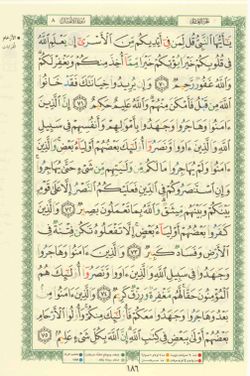 الجزء العاشر
سورة الأنفال ٨
يَٰٓأَيُّهَا ٱلنَّبِيُّ قُل لِّمَن فِىٓ أَيْدِيكُم مِّنَ ٱلْأَسْرَىٰٓ إِن يَعْلَمِ ٱللَّهُ
فِى قُلُوبِكُمْ خَيْرًا يُؤْتِكُمْ خَيْرًا مِّمَّآ أُخِذَ مِنكُمْ وَيَغْفِرْ لَكُمْ
وَٱللَّهُ غَفُورٌ رَّحِيمٌ ٧٠ وَإِن يُرِيدُوا۟ خِيَانَتَكَ فَقَدْ خَانُوا۟
ٱللَّهَ مِن قَبْلُ فَأَمْكَنَ مِنْهُمْ وَٱللَّهُ عَلِيمٌ حَكِيمٌ ٧١ إِنَّ ٱلَّذِينَ
ءَامَنُوا۟ وَهَاجَرُوا۟ وَجَٰهَدُوا۟ بِأَمْوَٰلِهِمْ وَأَنفُسِهِمْ فِى سَبِيلِ
ٱللَّهِ وَٱلَّذِينَ ءَاوَوا۟ وَّنَصَرُوٓا۟ أُو۟لَٰٓئِكَ بَعْضُهُمْ أَوْلِيَآءُ بَعْضٍ وَٱلَّذِينَ
ءَامَنُوا۟ وَلَمْ يُهَاجِرُوا۟ مَا لَكُم مِّن وَلَٰيَتِهِم مِّن شَىْءٍ حَتَّىٰ يُهَاجِرُوا۟
وَإِنِ ٱسْتَنصَرُوكُمْ فِى ٱلدِّينِ فَعَلَيْكُمُ ٱلنَّصْرُ إِلَّا عَلَىٰ قَوْمٍۭ
بَيْنَكُمْ وَبَيْنَهُم مِّيثَٰقٌ وَٱللَّهُ بِمَا تَعْمَلُونَ بَصِيرٌ ٧٢ وَٱلَّذِينَ
كَفَرُوا۟ بَعْضُهُمْ أَوْلِيَآءُ بَعْضٍ إِلَّا تَفْعَلُوهُ تَكُن فِتْنَةٌ فِى
ٱلْأَرْضِ وَفَسَادٌ كَبِيرٌ ٧٣ وَٱلَّذِينَ ءَامَنُوا۟ وَهَاجَرُوا۟
وَجَٰهَدُوا۟ فِى سَبِيلِ ٱللَّهِ وَٱلَّذِينَ ءَاوَوا۟ وَّنَصَرُوٓا۟ أُو۟لَٰٓئِكَ هُمُ
ٱلْمُؤْمِنُونَ حَقًّا لَّهُم مَّغْفِرَةٌ وَرِزْقٌ كَرِيمٌ ٧٤ وَٱلَّذِينَ ءَامَنُوا۟ مِنۢ
بَعْدُ وَهَاجَرُوا۟ وَجَٰهَدُوا۟ مَعَكُمْ فَأُو۟لَٰٓئِكَ مِنكُمْ وَأُو۟لُوا۟ ٱلْأَرْحَامِ
بَعْضُهُمْ أَوْلَىٰ بِبَعْضٍ فِى كِتَٰبِ ٱللَّهِ إِنَّ ٱللَّهَ بِكُلِّ شَىْءٍ عَلِيمٌۢ ٧٥
١٨٦